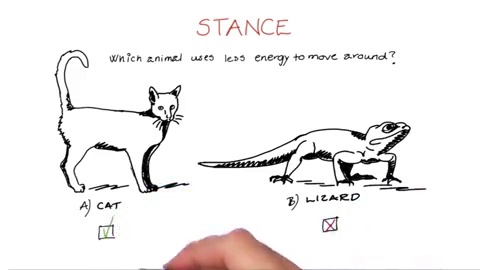 STANCE
Which animal uses less energy to move around?
A) CAT
B) LIZARD